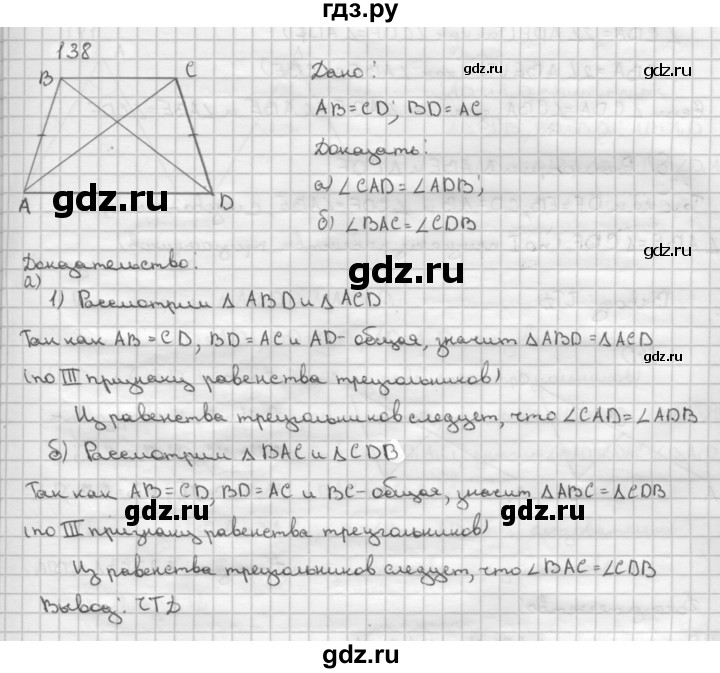 гдз.ру
138
B C
A D
Дано:
AB=CD; BD=AC
Доказать:
а) ∠CAD=∠ADB;
б) ∠BAC=∠CDB
gdz.ru
gdz.ru
gdz.ru
gdz.ru
gdz.ru
Доказательство:
а)
1) Рассмотрим △ABD и △ACD
Так как AB=CD, BD=AC и AD- общая, значит △ABD=△ACD
gdz.ru
(по III признаку равенства треугольников)
Из равенства треугольников следует, что ∠CAD=∠ADB
б) Рассмотрим △BAC и △CDB
Так как AB=CD, BD=AC и BC-общая, значит △ABC=△CDB
gdz.ru
gdz.ru
(по III признаку равенства треугольников)
Из равенства треугольников следует, что ∠BAC=∠CDB
Вывод: ЧТД
gdz.ru
gdz.ru
gdz.ru